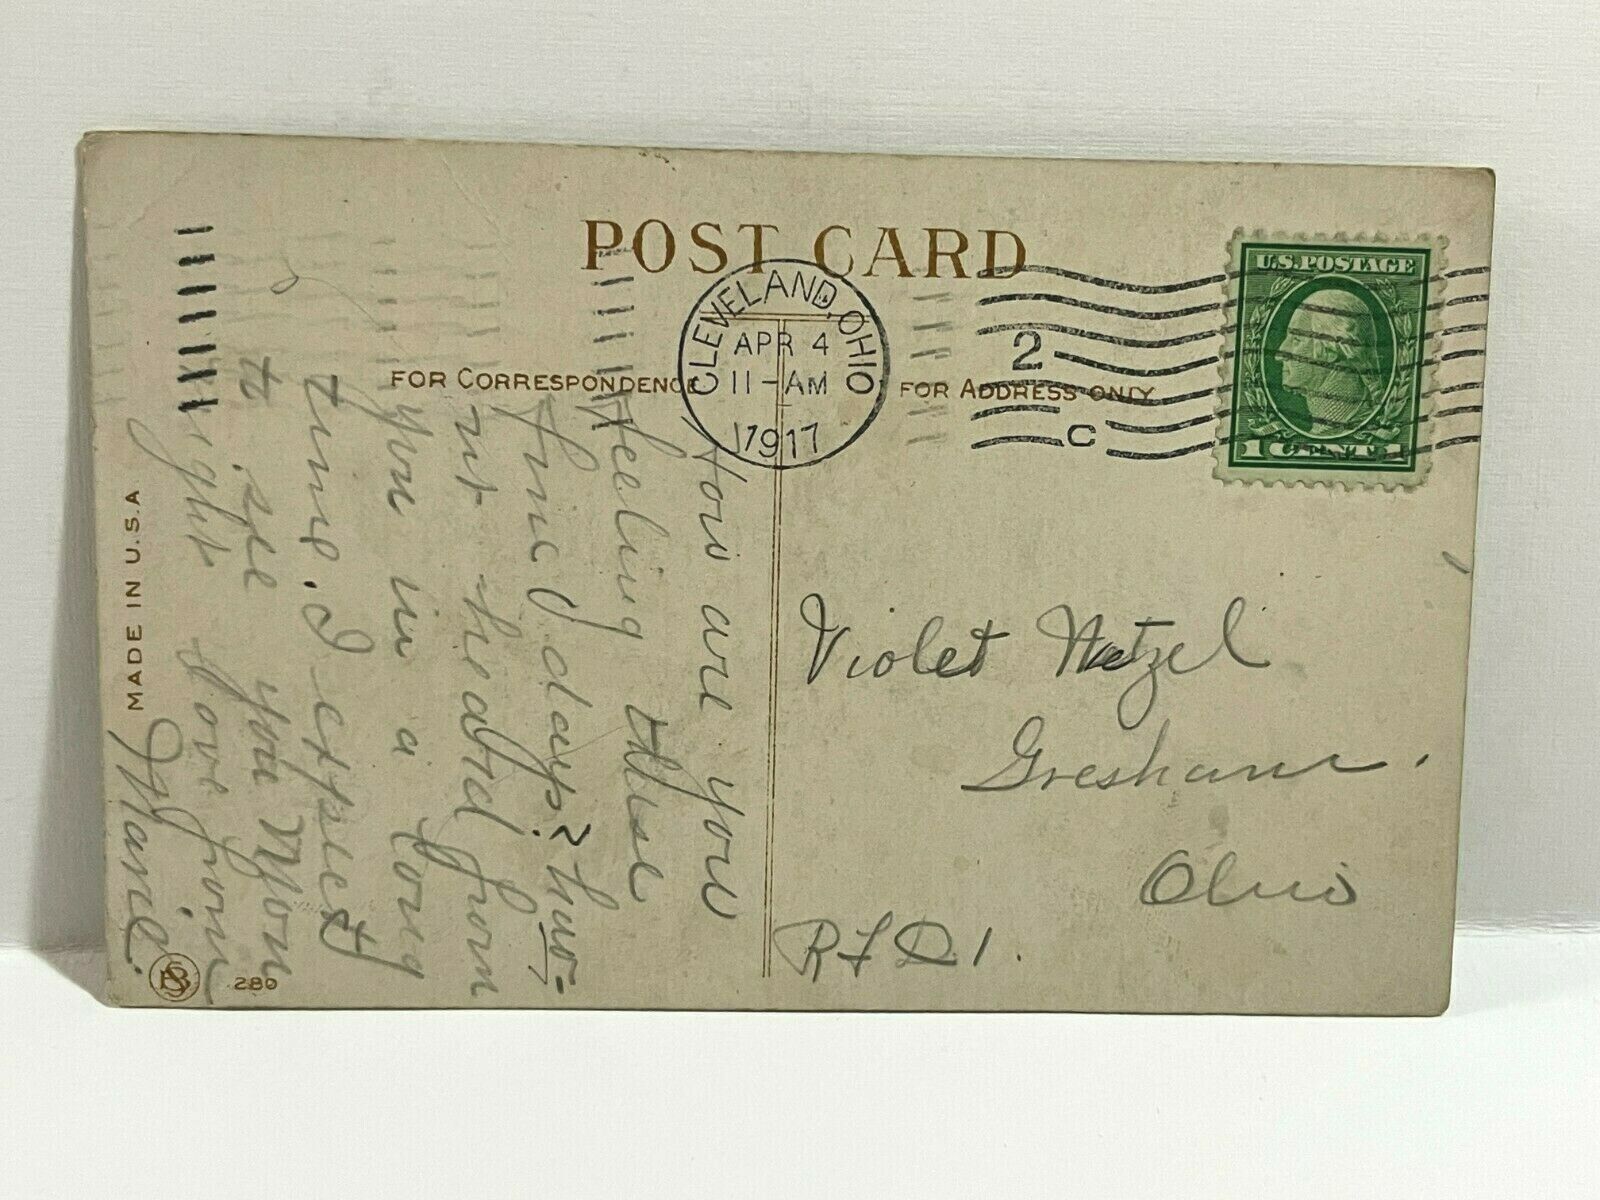 POST CARD
CLEVELAND, OHIO
APR 4
11-AM
1917
2
C
U.S. POSTAGE
1 CENT 1
FOR CORRESPONDENCE
FOR ADDRESS ONLY
How are you
feeling these
fine days?
not heard from
you in a long
time. I expect
to see you Mon
night Love from
Marie.
Violet Wetzel
Gresham.
Ohio
R F D 1.
MADE IN U.S.A
280